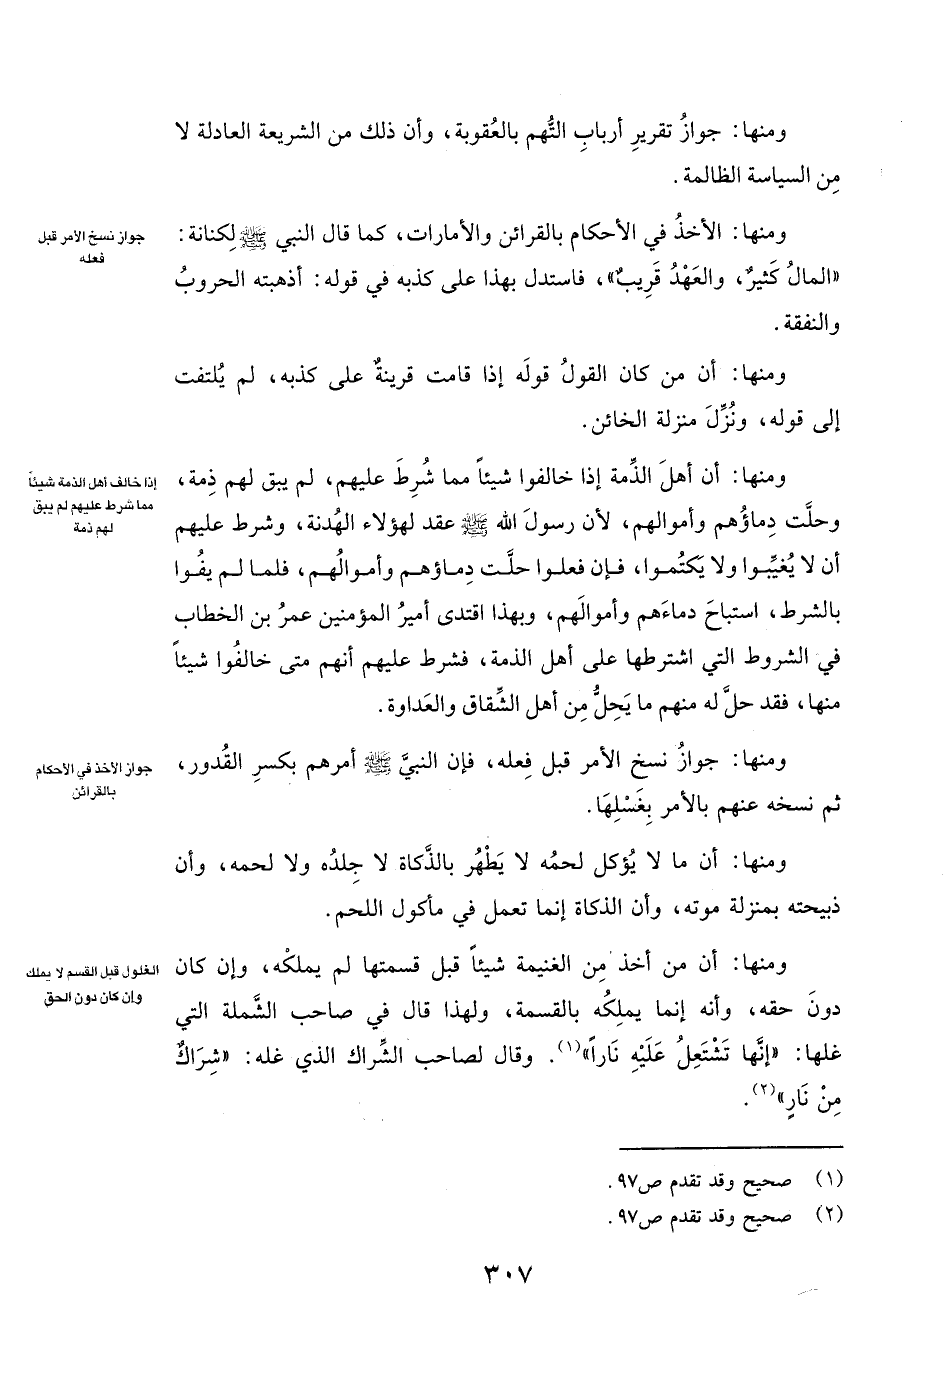 ومنها: جوازُ تقريرِ أربابِ التُّهم بالعُقوبة، وأن ذلك من الشريعة العادلة لا
مِن السياسة الظالمة.
ومنها: الأخذُ في الأحكام بالقرائن والأمارات، كما قال النبي ﷺ لِكنانة:
«المالُ كَثيرٌ، والعَهْدُ قَرِيبٌ»، فاستدل بهذا على كذبه في قوله: أذهبته الحروبُ
والنفقة.
جواز نسخ الأمر قبل
فعله
ومنها: أن من كان القولُ قولَه إذا قامت قرينةٌ على كذبه، لم يُلتفت
إلى قوله، ونُزِّلَ منزلة الخائن.
ومنها: أن أهلَ الذِّمة إذا خالفوا شيئاً مما شُرِطَ عليهم، لم يبق لهم ذِمة،
وحلَّت دِماؤُهم وأموالهم، لأن رسولَ الله ﷺ عقد لهؤلاء الهُدنة، وشرط عليهم
أن لا يُغيِّبوا ولا يَكتُموا، فإن فعلوا حلَّت دِماؤهم وأموالُهم، فلما لم يفُوا
بالشرط، استباحَ دماءَهم وأموالَهم، وبهذا اقتدى أميرُ المؤمنين عمرُ بن الخطاب
في الشروط التي اشترطها على أهل الذمة، فشرط عليهم أنهم متى خالفُوا شيئاً
منها، فقد حلَّ له منهم ما يَحِلُّ مِن أهل الشِّقاق والعَداوة.
إذا خالف أهل الذمة شيئاً
مما شرط عليهم لم يبق
لهم ذمة
ومنها: جوازُ نسخ الأمر قبل فِعله، فإن النبيَّ ﷺ أمرهم بكسرِ القُدور،
ثم نسخه عنهم بالأمر بِغَسْلِهَا.
جواز الأخذ في الأحكام
بالقرائن
ومنها: أن ما لا يُؤكل لحمُه لا يَطْهُر بالذَّكاة لا جِلدُه ولا لحمه، وأن
ذبيحته بمنزلة موته، وأن الذكاة إنما تعمل في مأكول اللحم.
ومنها: أن من أخذ مِن الغنيمة شيئاً قبل قسمتها لم يملكْه، وإن كان
دونَ حقه، وأنه إنما يملِكُه بالقسمة، ولهذا قال في صاحب الشَّملة التي
غلها: «إنَّها تَشْتَعِلُ عَلَيْهِ نَاراً»(١). وقال لصاحب الشِّراك الذي غله: «شِرَاكٌ
مِنْ نَارٍ»(٢).
الغلول قبل القسم لا يملك
وإن كان دون الحق
(١) صحيح وقد تقدم ص٩٧.
(٢) صحيح وقد تقدم ص٩٧.
٣٠٧